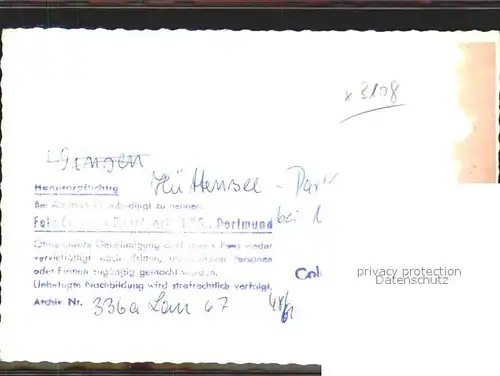 x 3108
Hüttensee - Par
bei
Honorarpflichtig
Bei Abdruck unbedingt zu nennen:
Dortmund
Ohne unsere Genehmigung darf dieses Foto weder
vervielfältigt noch dritten, unbefugten Personen
oder Firmen zugängig gemacht werden.
Unbefugte Nachbildung wird strafrechtlich verfolgt.
Archiv Nr. 336a Lan 67
Col
privacy protection
Datenschutz